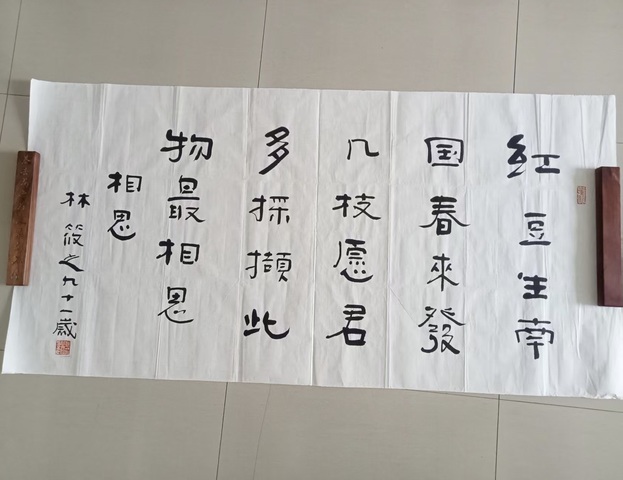 红豆生南
国春來發
几枝愿君
多採擷此
物最相思
相思
林筱之九十一歲